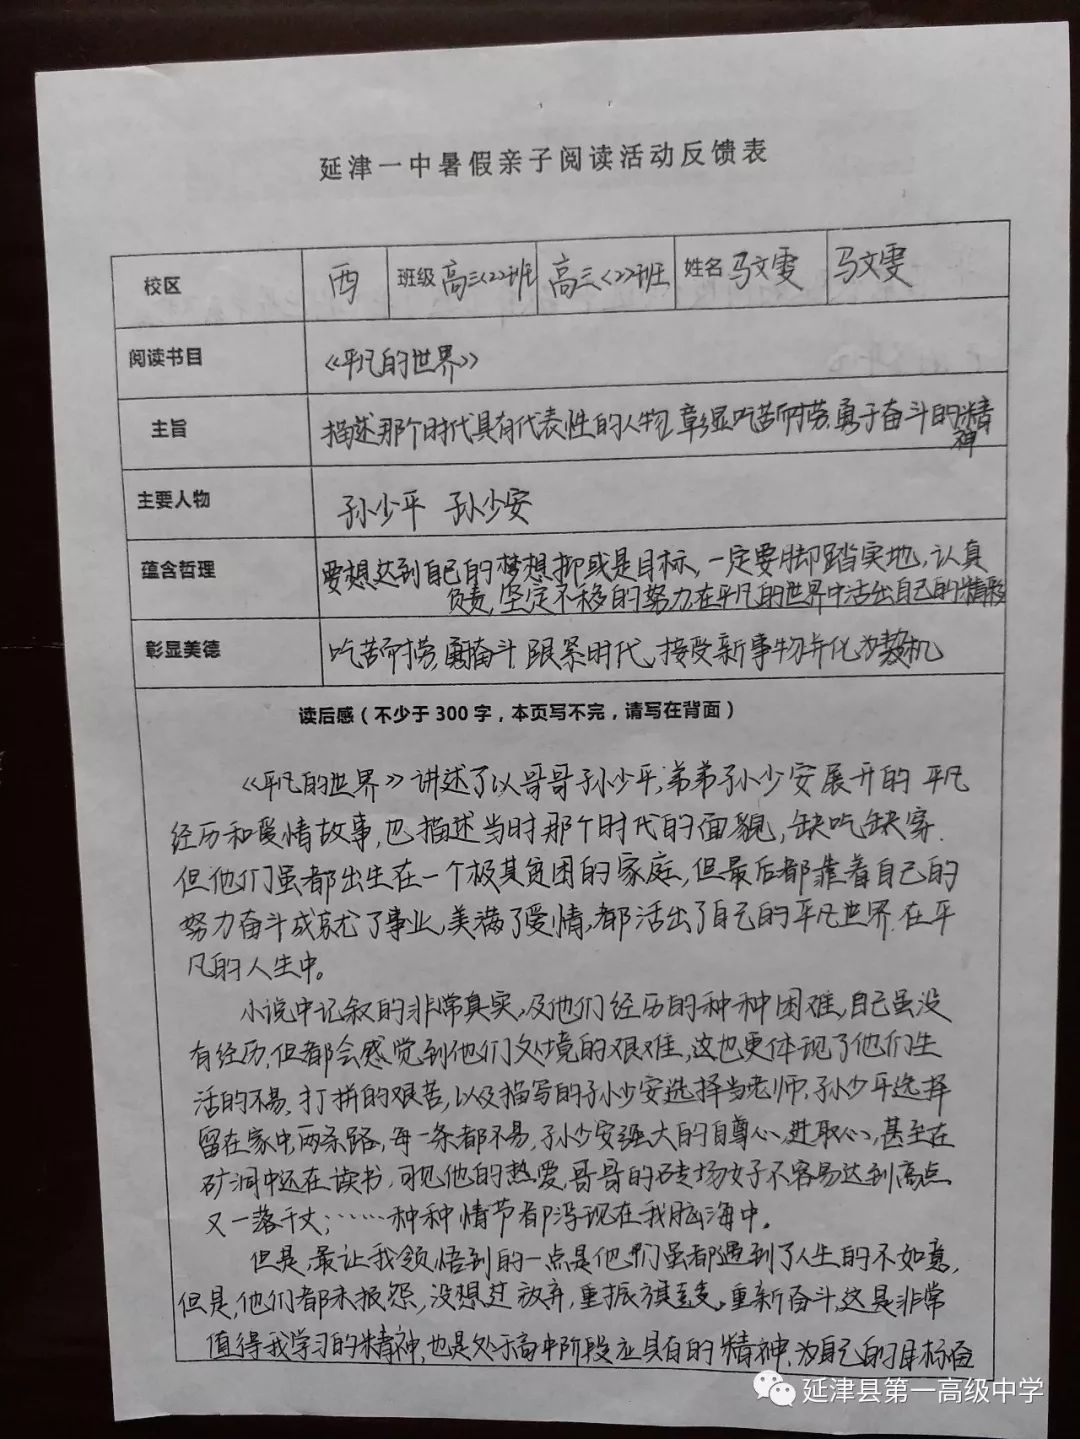 延津一中暑假亲子阅读活动反馈表
校区 西 班级 高三<22>班 高三<22>班 姓名 马文雯 马文雯
阅读书目 《平凡的世界》
主旨 描述那个时代具有代表性的人物,彰显吃苦耐劳、勇于奋斗的精神
主要人物 孙少平 孙少安
蕴含哲理 要想达到自己的梦想抑或是目标,一定要脚踏实地,认真
负责,坚定不移的努力,在平凡的世界中活出自己的精彩
彰显美德 吃苦耐劳 奋斗 跟紧时代、接受新事物并化为契机
读后感(不少于300字,本页写不完,请写在背面)
《平凡的世界》讲述了以哥哥孙少平,弟弟孙少安展开的平凡
经历和爱情故事,也描述当时那个时代的面貌,缺吃缺穿.
但他们虽都出生在一个极其贫困的家庭,但最后都靠着自己的
努力奋斗成就了事业,美满了爱情,都活出了自己的平凡世界.在平
凡的人生中。
小说中记叙的非常真实,及他们经历的种种困难,自己虽没
有经历,但都会感觉到他们处境的艰难,这也更体现了他们生
活的不易,打拼的艰苦,以及描写的孙少安选择当老师,孙少平选择
留在家中,两条路,每一条都不易,孙少安强大的自尊心,进取心,甚至在
矿洞中还在读书,可见他的热爱,哥哥的砖场好不容易达到高点
又一落千丈;……种种情节都浮现在我脑海中。
但是,最让我领悟到的一点是他们虽都遇到了人生的不如意,
但是,他们都未报怨,没想过放弃,重振旗鼓,重新奋斗,这是非常
值得我学习的精神,也是处于高中阶段应具有的精神,为自己的目标奋
延津县第一高级中学